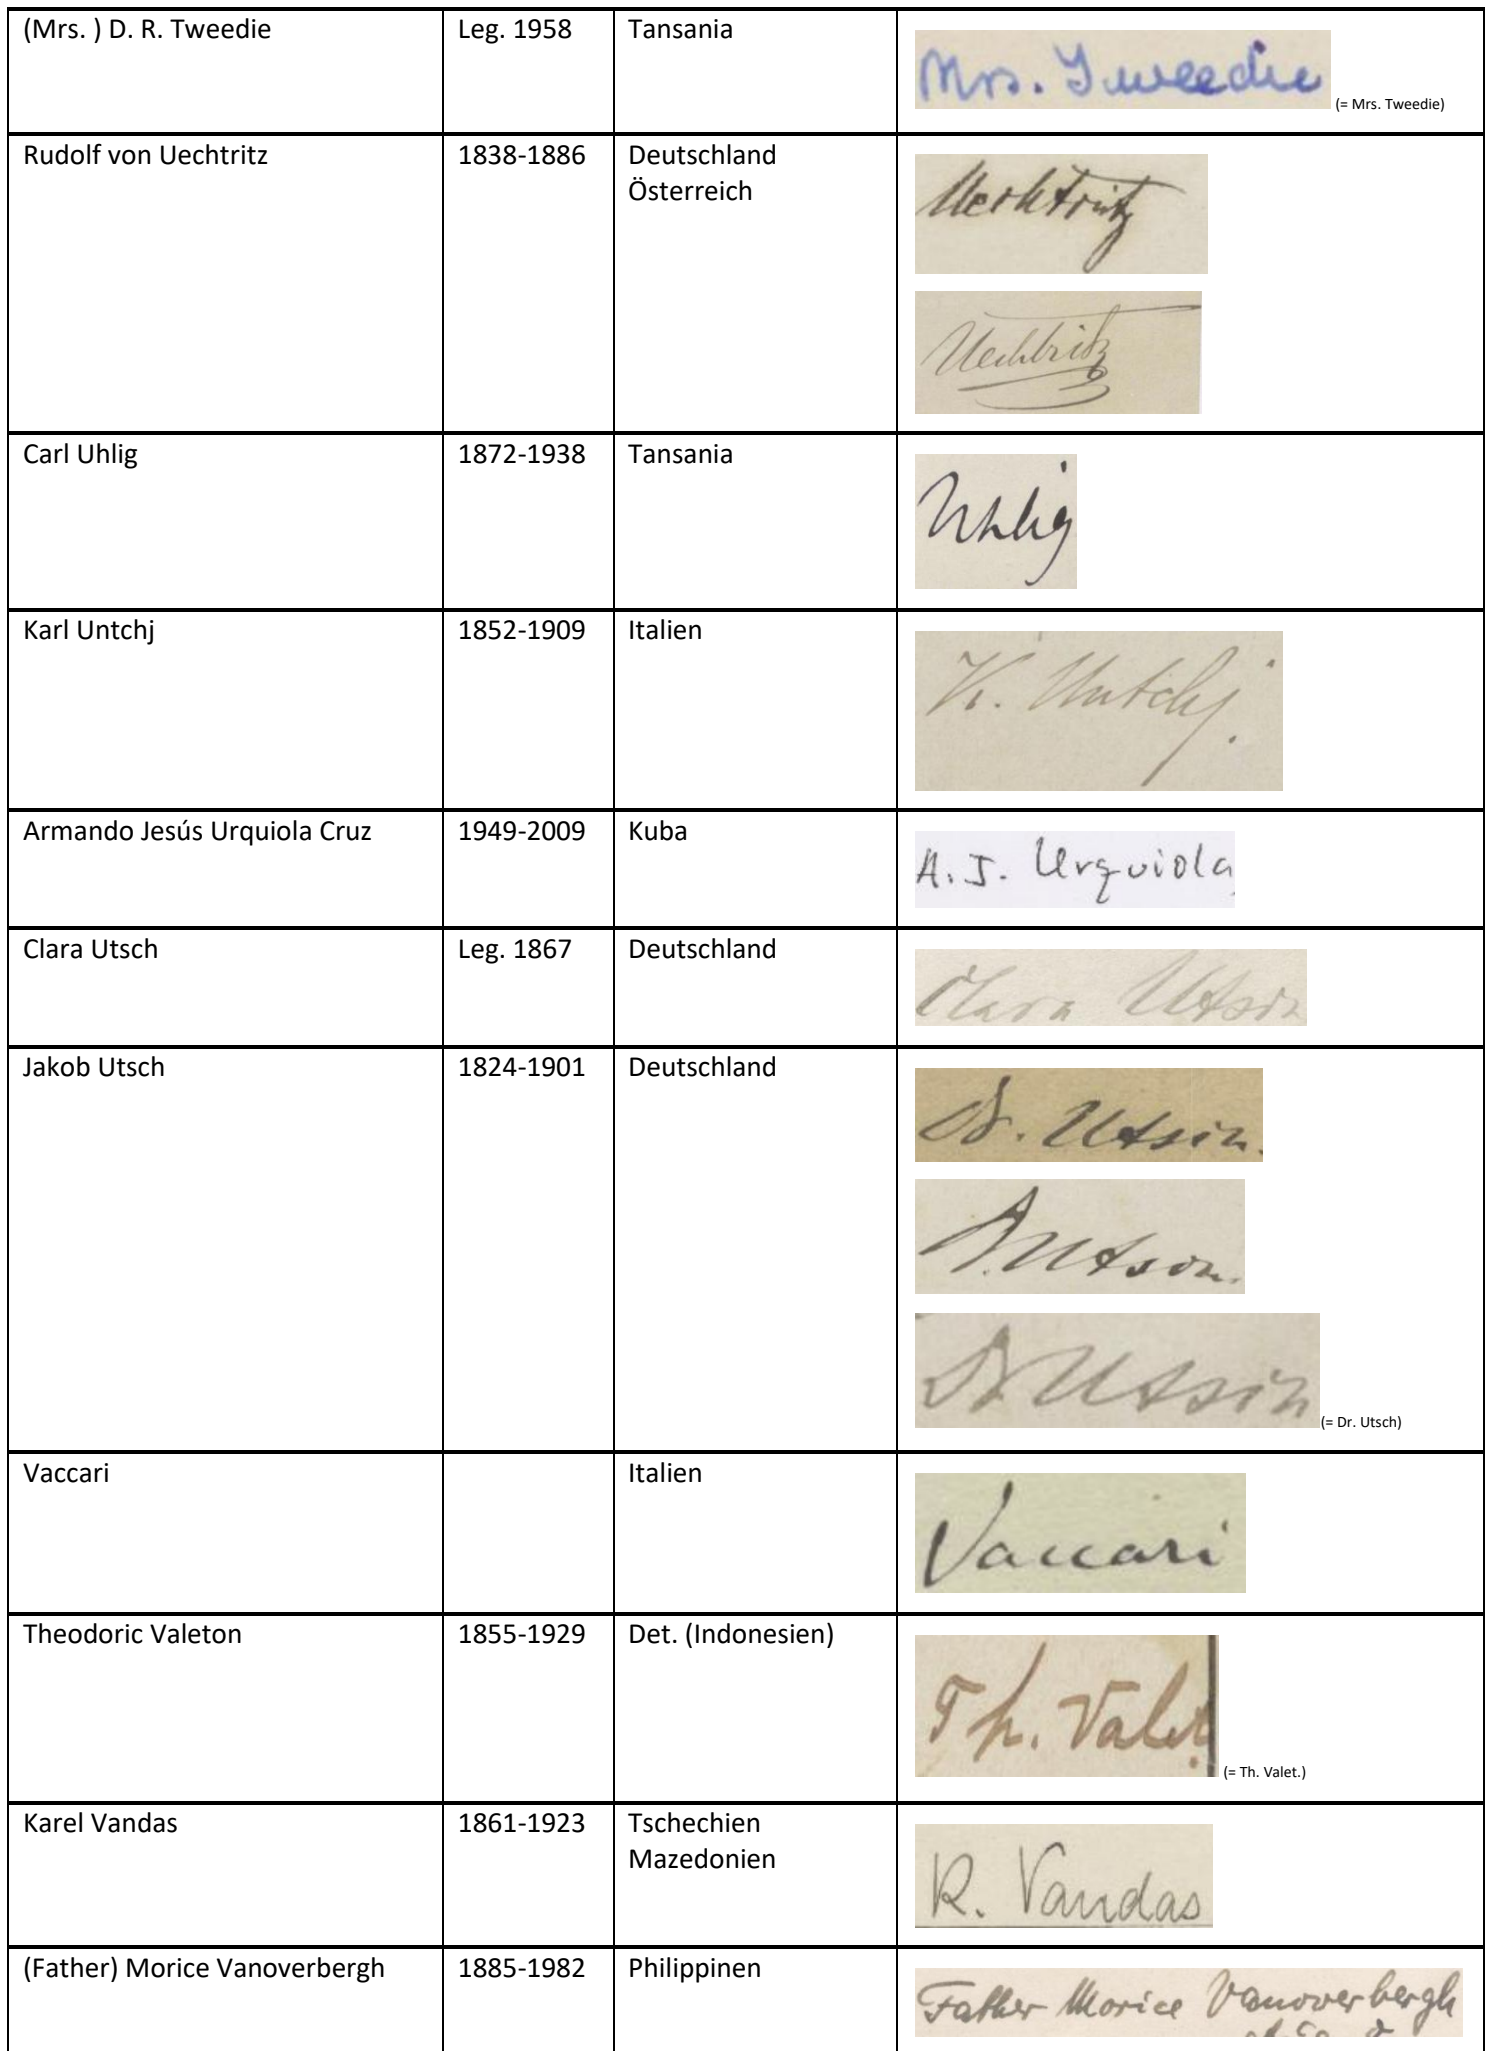 (Mrs. ) D. R. Tweedie
Leg. 1958
Tansania
Mrs. Tweedie
(= Mrs. Tweedie)
Rudolf von Uechtritz
1838-1886
Deutschland
Österreich
Uechtritz
Uechtritz
Carl Uhlig
1872-1938
Tansania
Uhlig
Karl Untchj
1852-1909
Italien
K. Untchj.
Armando Jesús Urquiola Cruz
1949-2009
Kuba
A. J. Urquiola
Clara Utsch
Leg. 1867
Deutschland
Clara Utsch
Jakob Utsch
1824-1901
Deutschland
Dr. Utsch.
Dr. Utsch.
Dr Utsch
(= Dr. Utsch)
Vaccari
Italien
Vaccari
Theodoric Valeton
1855-1929
Det. (Indonesien)
Th. Valet.
(= Th. Valet.)
Karel Vandas
1861-1923
Tschechien
Mazedonien
K. Vandas
(Father) Morice Vanoverbergh
1885-1982
Philippinen
Father Morice Vanoverbergh